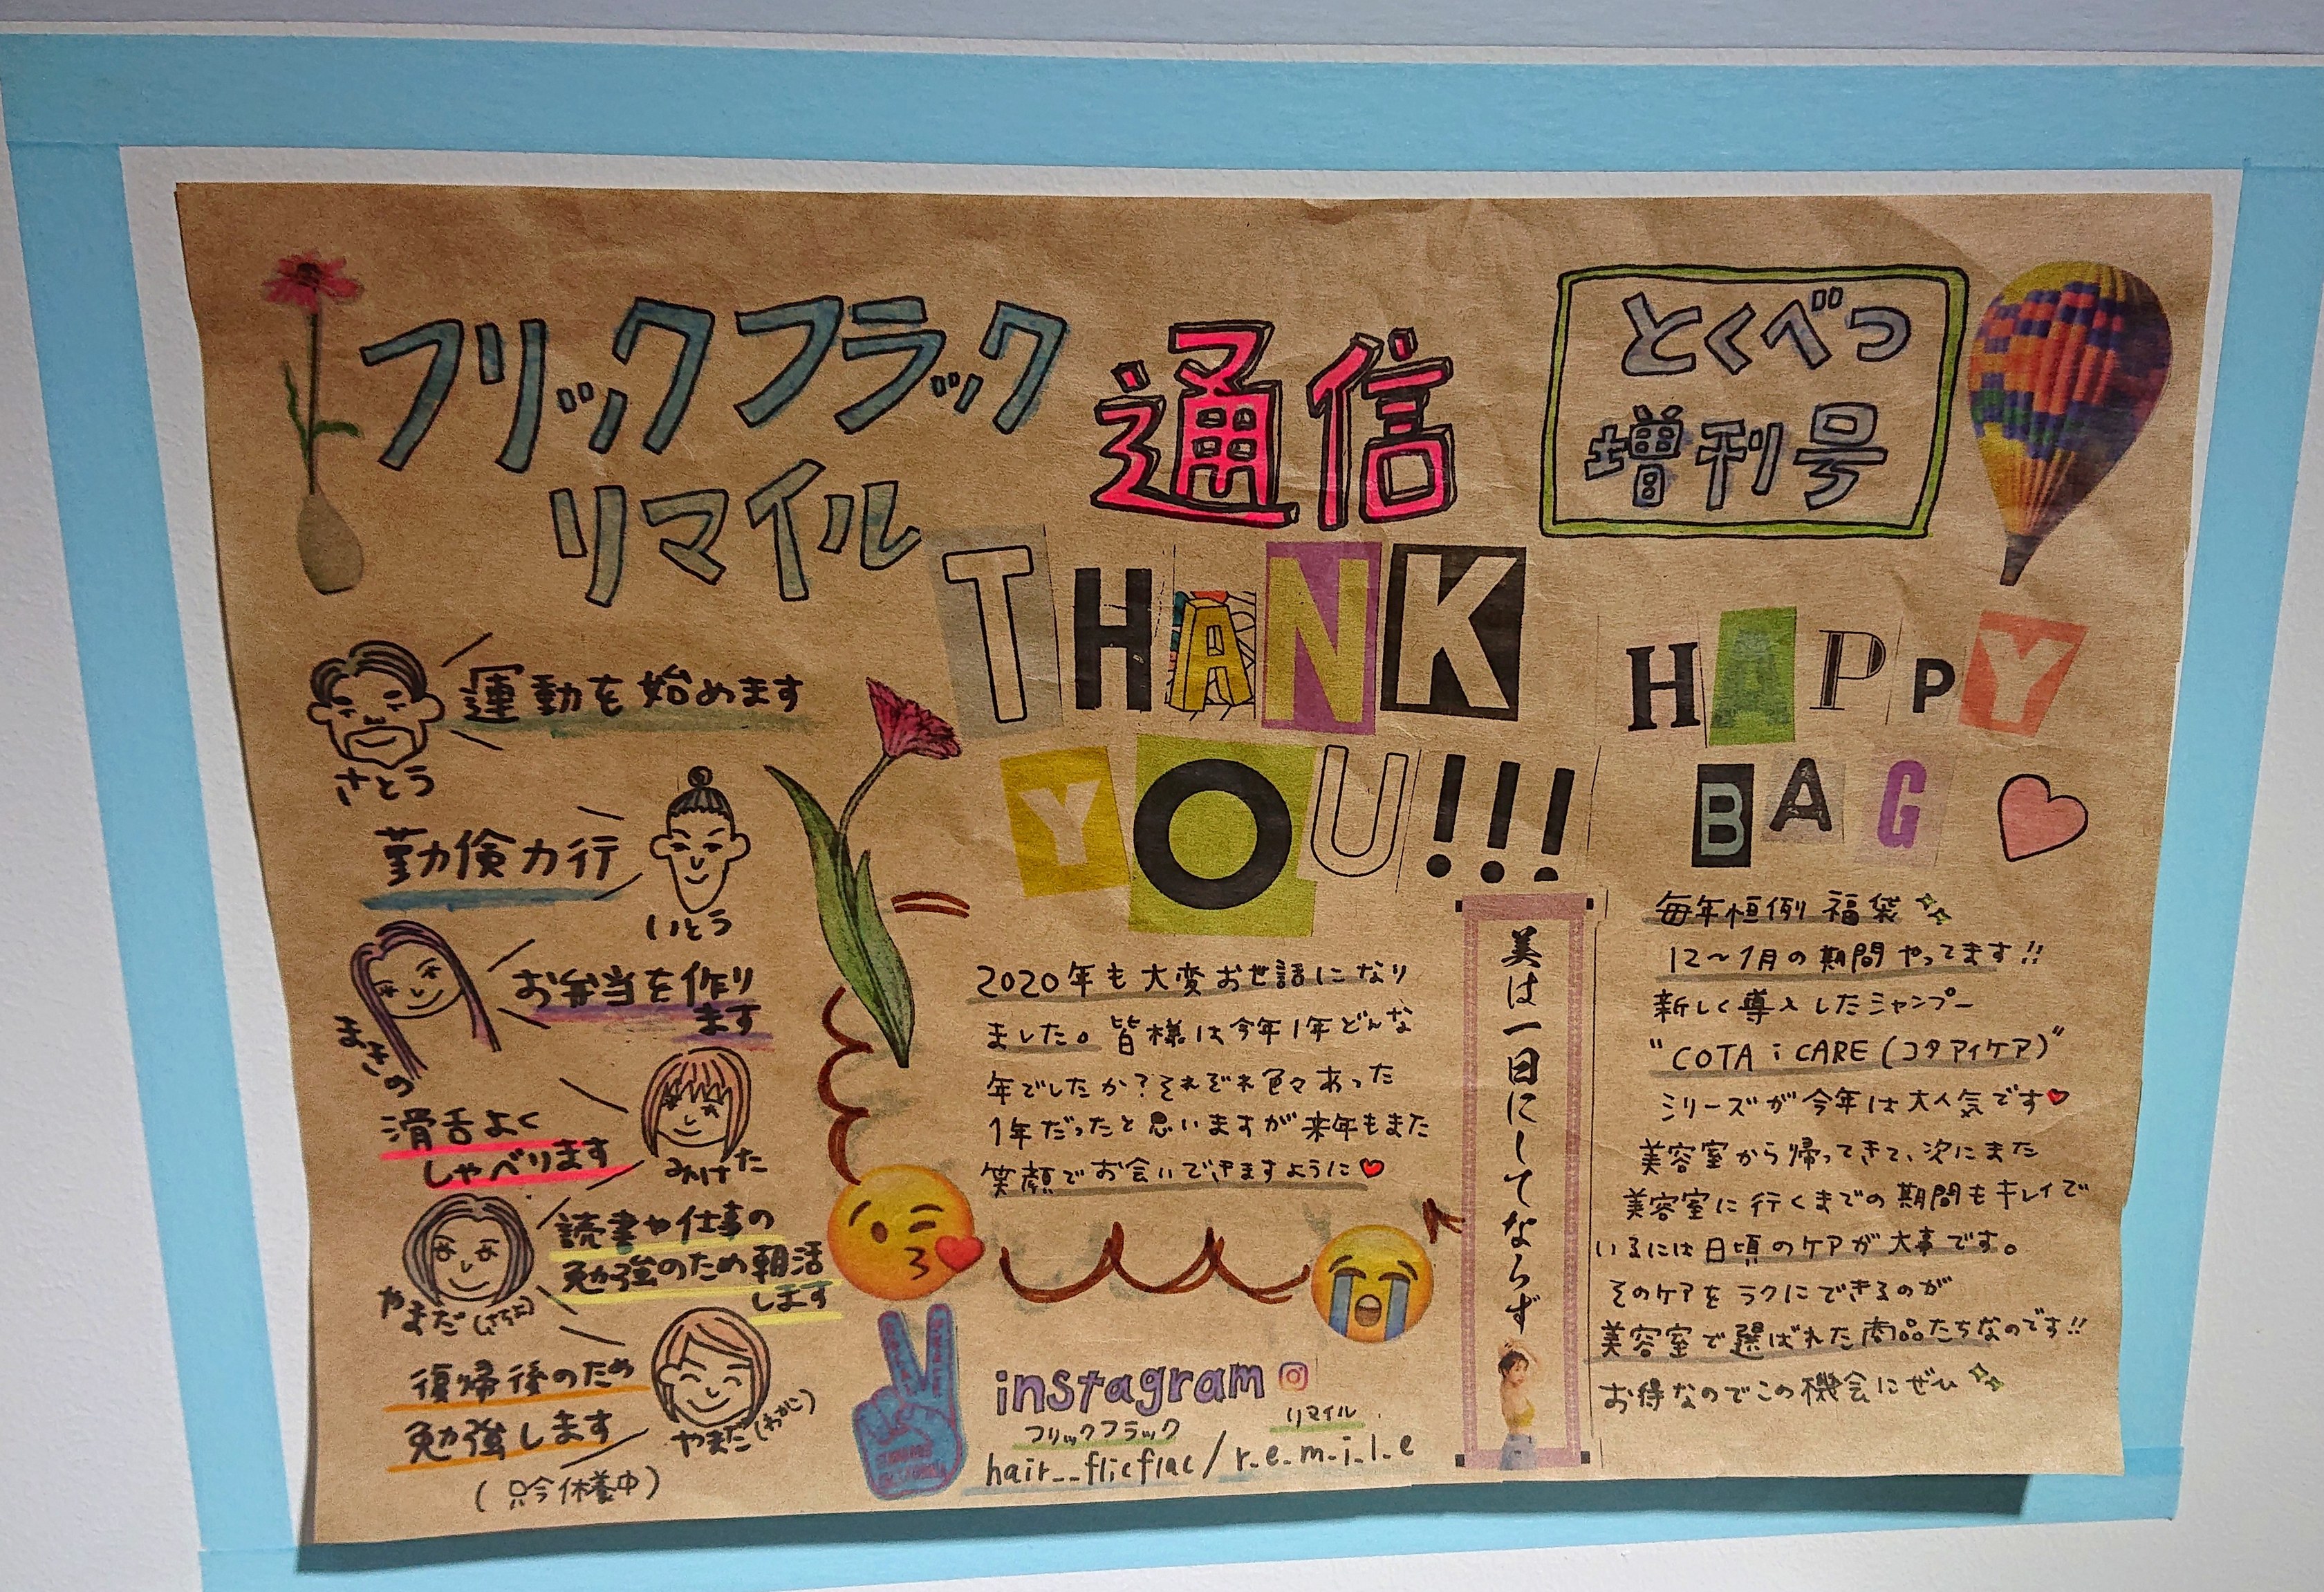 フリックフラック
リマイル
通信
とくべつ
増刊号
THANK
YOU!!!
HAPPY
BAG
運動を始めます
さとう
勤倹力行
いとう
お弁当を作り
ます
まさの
滑舌よく
しゃべります
みけた
読書や仕事の
勉強のため朝活
します
やまだ
復帰後のため
勉強します
(只今休養中)
やまだ(わかじ)
2020年も大変お世話になり
ました。皆様は今年1年どんな
年でしたか?それぞれ色々あった
1年だったと思いますが来年もまた
笑顔でお会いできますように
instagram
フリックフラック
リマイル
hair__flicflac/r_e_m_i_l_e
美は一日にしてならず
毎年恒例 福袋
12〜1月の期間やってます!!
新しく導入したシャンプー
"COTA i CARE(コタアイケア)"
シリーズが今年は大人気です
美容室から帰ってきて、次にまた
美容室に行くまでの期間もキレイで
いるには日頃のケアが大事です。
そのケアをラクにできるのが
美容室で選ばれた商品たちなのです!!
お得なのでこの機会にぜひ